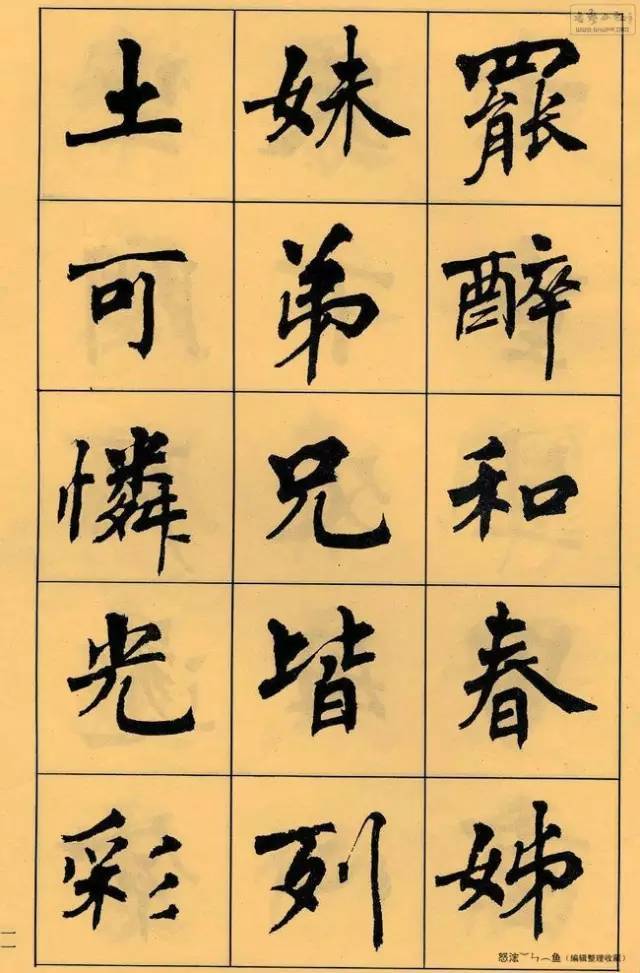 罷醉和春姊
妹弟兄皆列
土可憐光彩
一一
怒浤︶ㄣ︵鱼（编辑整理收藏）